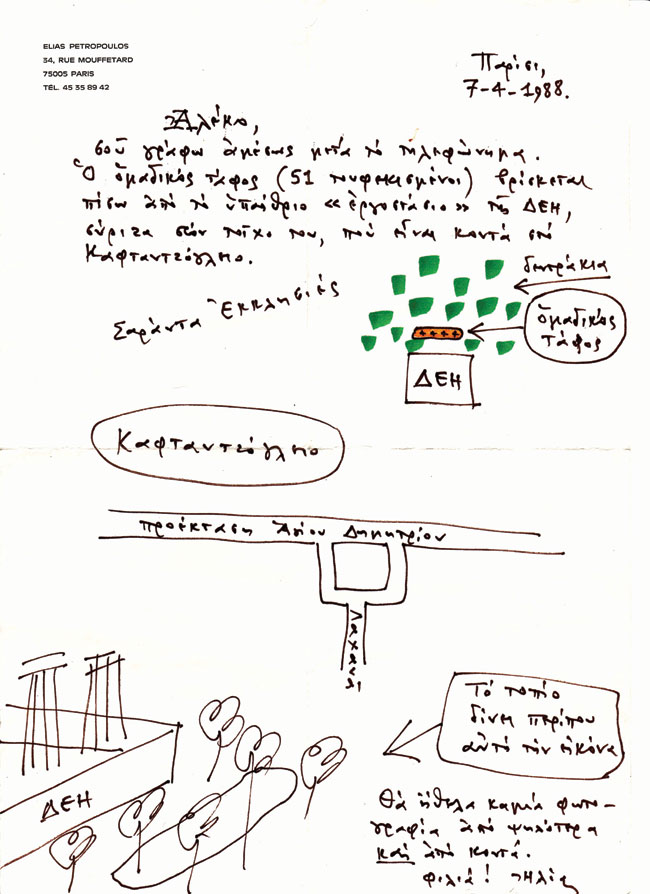 ELIAS PETROPOULOS
34, RUE MOUFFETARD
75005 PARIS
TÉL. 45 35 89 42
Παρίσι,
7-4-1988.
Ἀλέκο,
σοῦ γράφω ἀμέσως μετὰ τὸ τηλεφώνημα.
Ὁ ὁμαδικὸς τάφος (51 τουφεκισμένοι) βρίσκεται
πίσω ἀπὸ τὸ ὑπαίθριο «ἐργοστάσιο» τῆς ΔΕΗ,
σύρριζα στὸν τοῖχο του, ποὺ εἶναι κοντὰ στὸ
Καφταντζόγλειο.
Σαράντα Ἐκκλησιές
δεντράκια
ὁμαδικὸς
τάφος
ΔΕΗ
Καφταντζόγλειο
προέκταση Ἁγίου Δημητρίου
Λαχανᾶ
Τὸ τοπίο
δίνει περίπου
αὐτὸ τὴν εἰκόνα
ΔΕΗ
Θὰ ἤθελα καμία φωτο-
γραφία ἀπὸ ψηλότερα
καὶ ἀπὸ κοντά.
φιλιά! Ἠλίας